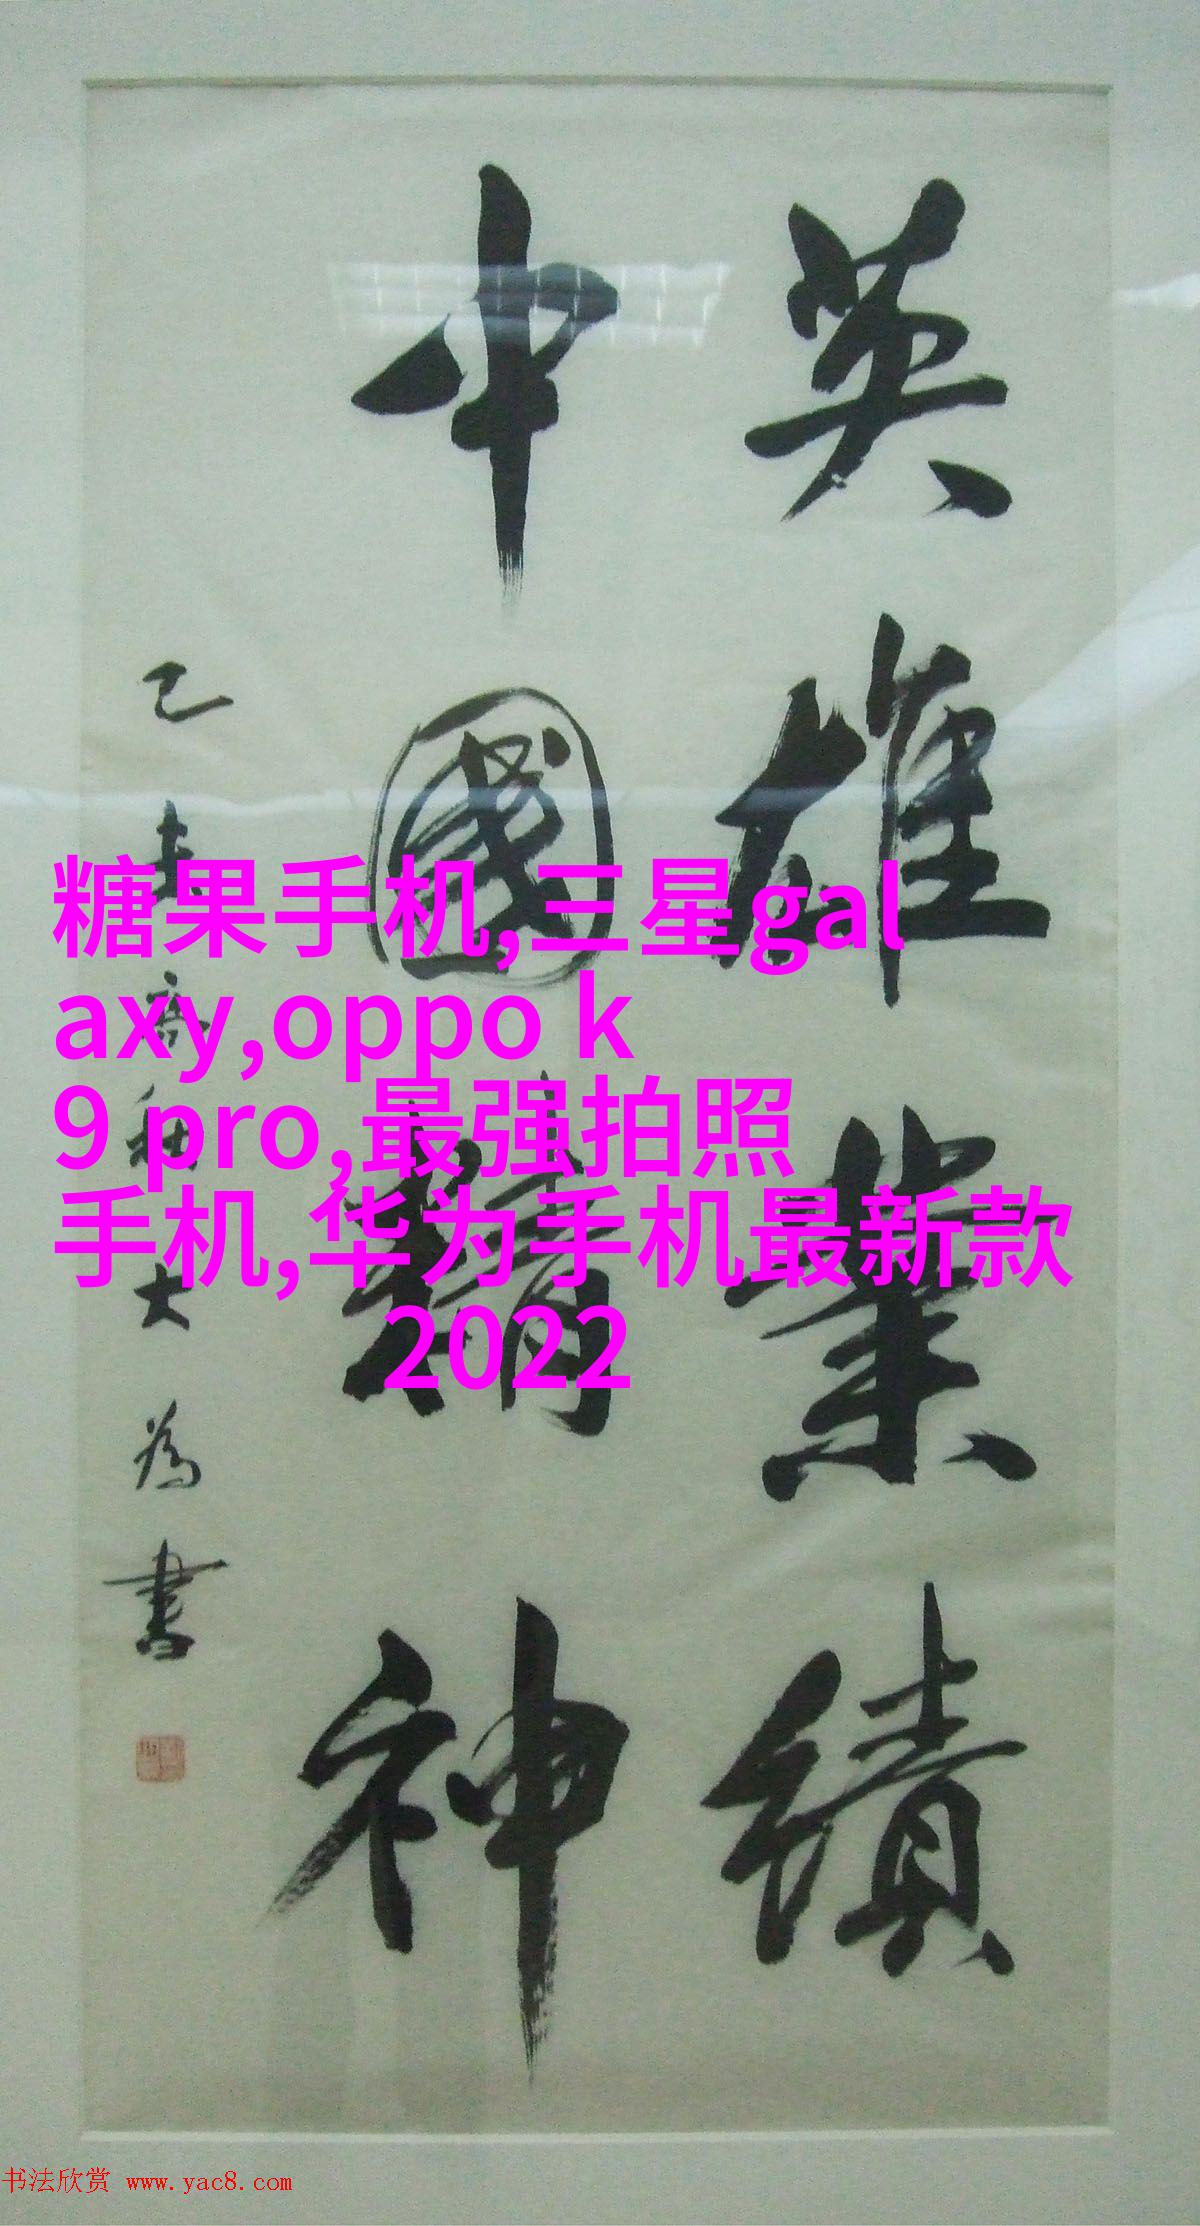 英雄業績
中國精神
乙未高秋大為書
糖果手机,三星gal
axy,oppo k
9 pro,最强拍照
手机,华为手机最新款
2022
书法欣赏 www.yac8.com